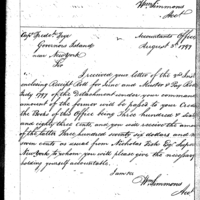 Wm Simmons
Acct.
Capt Fredk. Frye
Governors Island
near New York
Sir
Accountants Office
August 5. 1797
I received your letter of the 2nd Inst
enclosing Receipt Roll for June and Muster & Pay Roll
July 1797 of the Detachment under your command
amount of the former will be passed to your Credit
the Books of this Office being Three hundred & six
and eighty three cents, and you will receive the amount
of the latter Three hundred seventy six dollars and
cents on usual from Nicholas Fish Esqr Super
New York, to whom you will please give the necessary
holding yourself accountable.
I am Sir
Wm Simmons
Acct.